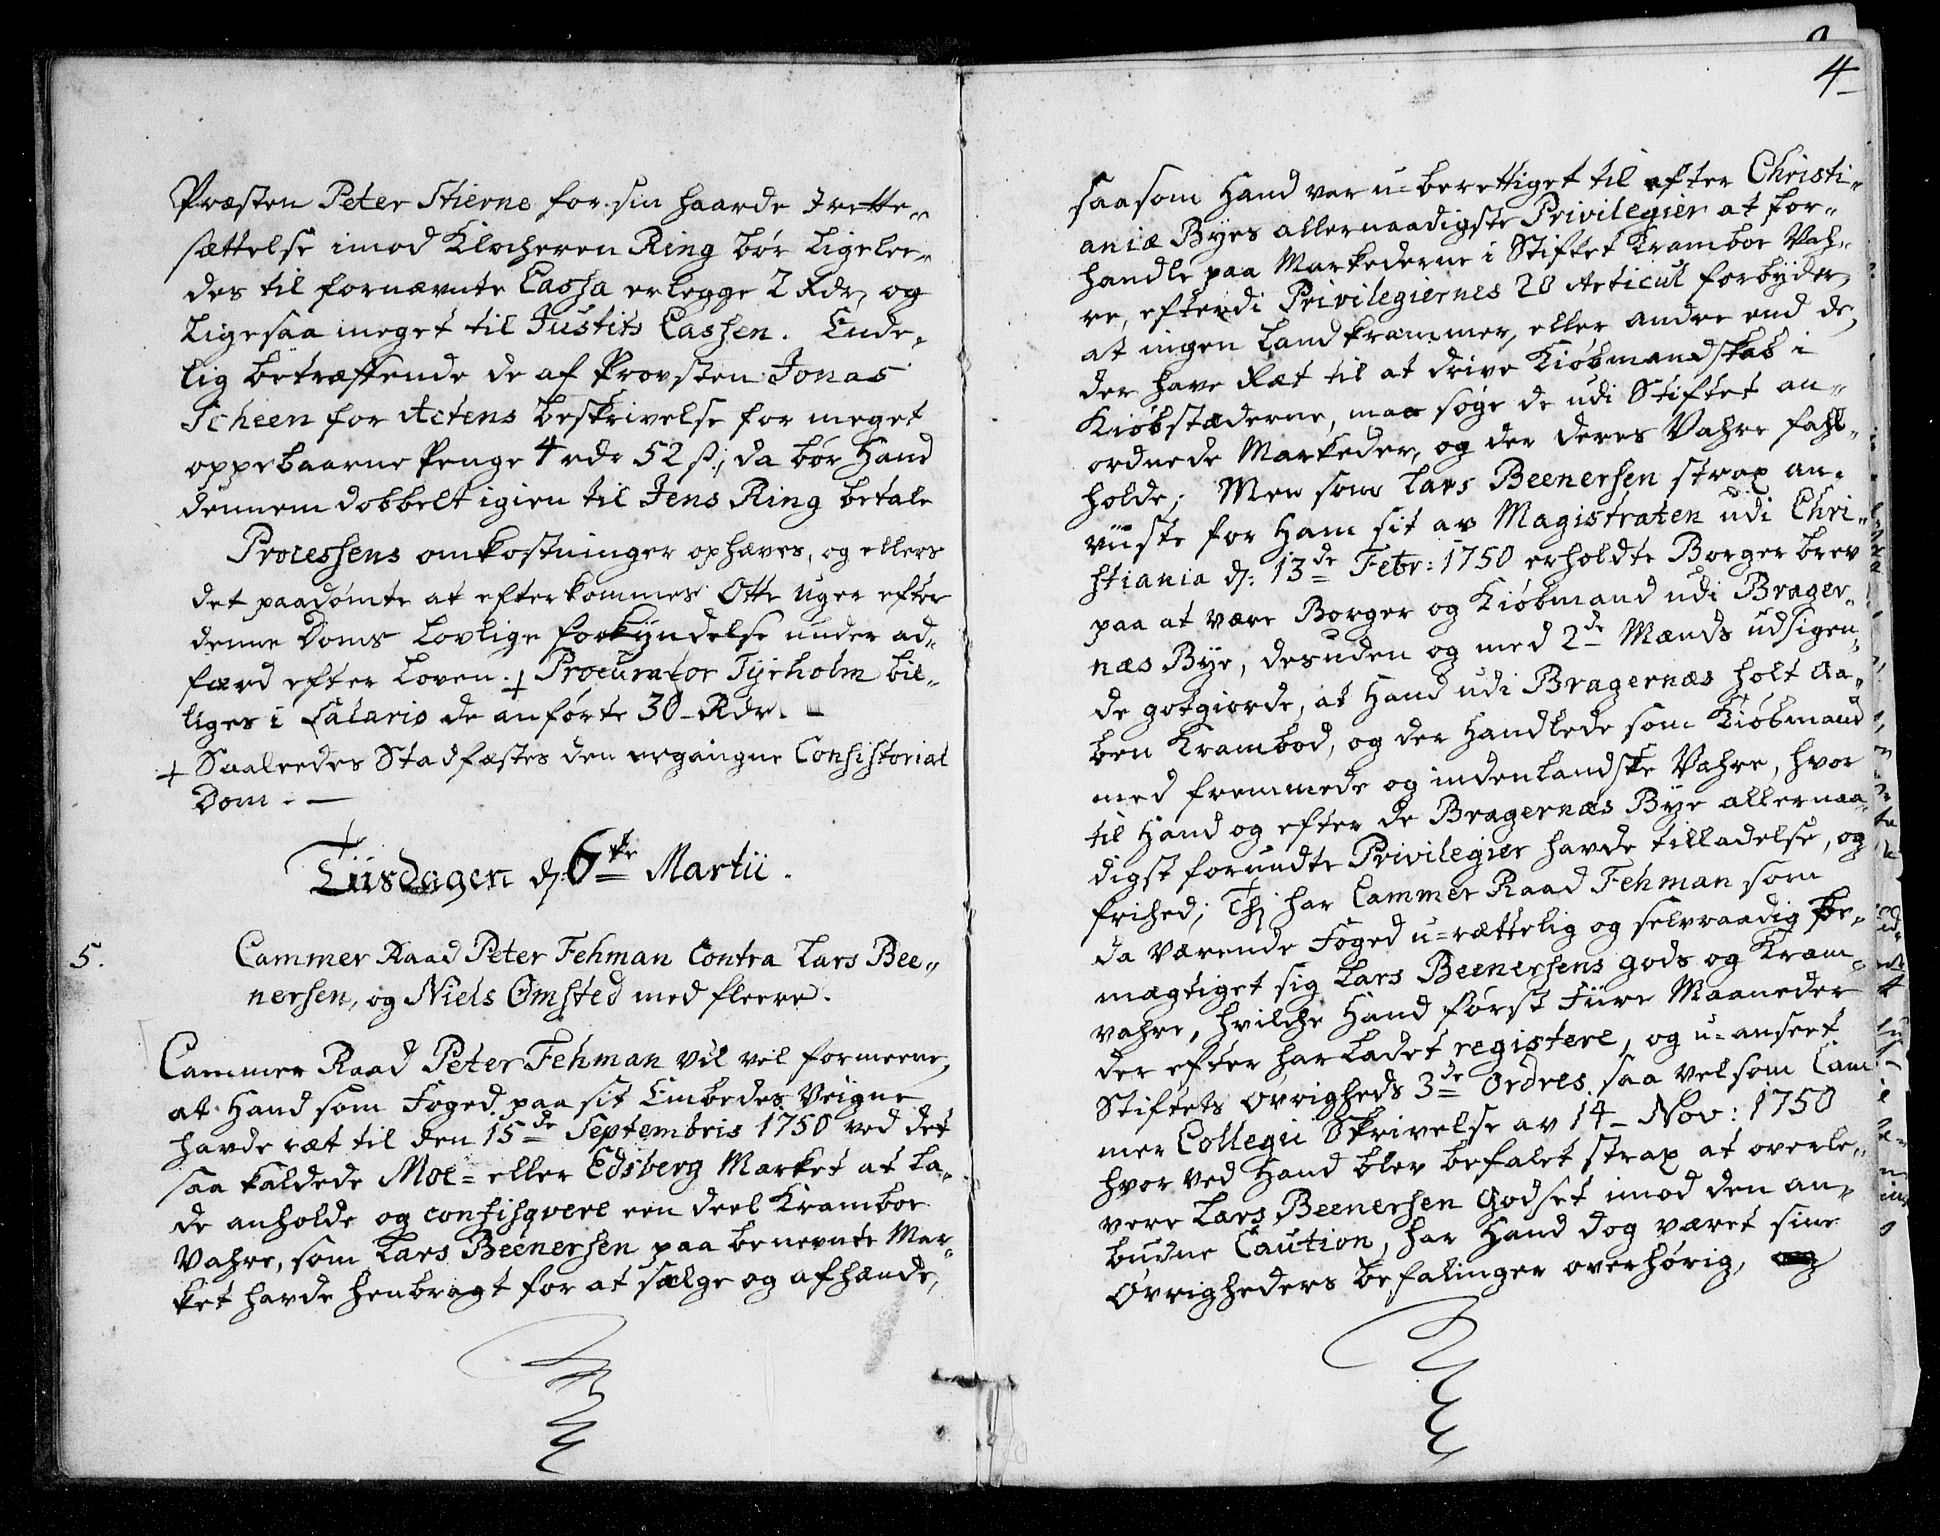 Præsten Peter Stierne for sin haarde Irette„
sættelse imod Klocheren Ring bør ligelee„
des til fornævnte Cassa erlegge 2 Rdr, og
ligesaa meget til Justits Cassen. Ende„
lig betræffende de af Provsten Jonas
Scheen for Actens beskrivelse for meget
oppebaarne Penge 4 rdr 52 s; da bør Hand
dennem dobbelt igien til Jens Ring betale
Processens omkostninger ophæves, og ellers
det paadømte at efterkommes Otte Uger efter
denne Doms lovlige forkyndelse under ad„
færd efter Loven. + Procurator Tyrholm bil„
liges i Salario de anførte 30 Rdr.
+ Saaleedes Stadfæstes den ergangne Consistorial
Dom. —
Tiisdagen d: 6te Martii.
5. Cammer Raad Peter Fehman Contra Lars Bee„
nersen, og Niels Omsted med fleere.
Cammer Raad Peter Fehman vil vel formeene,
at Hand som Foged paa sit Embedes Veigne
havde ræt til den 15de Septembris 1750 ved det
saa kaldede Moe= eller Edsberg Market at la„
de anholde og confisqvere een deel Kramboe
Vahre, som Lars Beenersen paa benevnte Mar„
ket havde henbragt for at sælge og afhænde,
4
saasom Hand var u=berettiget til efter Christi„
aniæ Byes allernaadigste Privilegier at for„
handle paa Markederne i Stiftet Kramboe Vah„
re, efterdi Privilegiernes 20 Articul forbyder,
at ingen Landkrammer, eller andre end de,
der have Ræt til at drive Kiøbmandskab i
Kiøbstæderne, maa søge de udi Stiftet an„
ordnede Markeder, og der deres Vahre fahl„
holde; Men som Lars Beenersen strax an„
viiste for Ham sit av Magistraten udi Chri„
stiania d: 13de Febr: 1750 erholdte Borger brev
paa at være Borger og Kiøbmand udi Brager„
næs Bye, desuden og med 2de Mænds udsigen„
de gotgiorde, at Hand udi Bragernæs holt Aa„
ben Krambod, og der Handlede som Kiøbmand
med fremmede og indenlandske Vahre, hvor
til Hand og efter de Bragernæs Bye allernaa„
digst forundte Privilegier havde tilladelse, og
frihed; Thi har Cammer Raad Fehman som
da værende Foged u=rættelig og selvraadig be„
mægtiget sig Lars Beenersens gods og Kram„
vahre, hvilche Hand først Fiire Maaneder
der efter har ladet registere, og u=anseet
Stiftets øvrigheds 3de Ordres saa vel som Cam
mer Collegii Skrivelse av 14 Nov: 1750
hvor ved Hand blev befalet strax at overle„
vere Lars Beenersen Godset imod den an„
budne Caution, har Hand dog været sine
Øvrigheders befalinger overhørig,